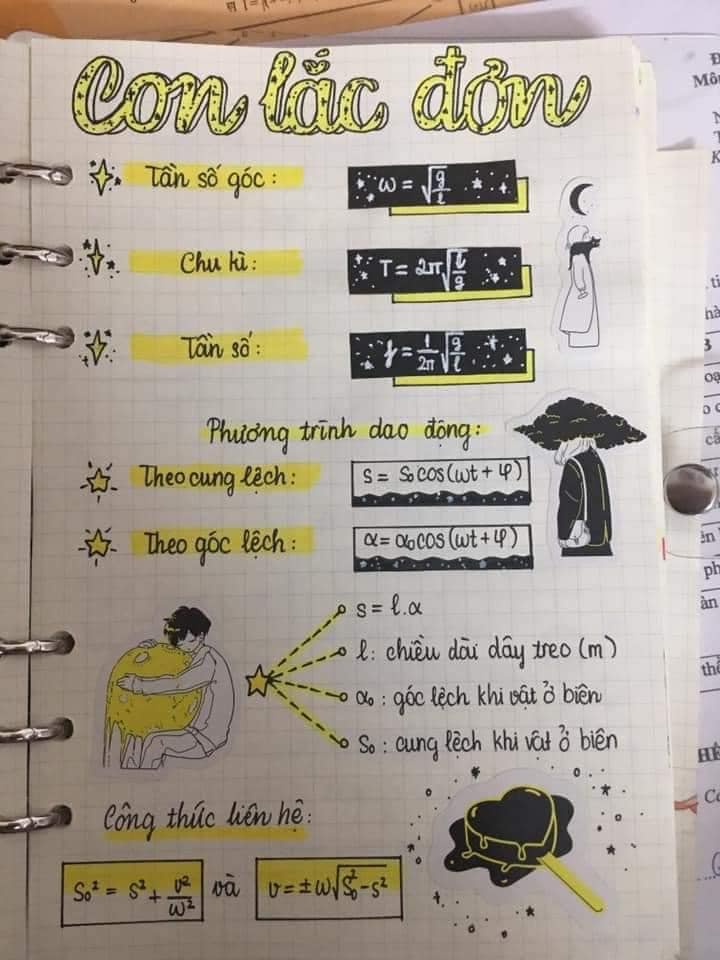 Con lắc đơn
Tần số góc: ω = √(g/l)
Chu kì: T = 2π√(l/g)
Tần số: f = 1/2π √(g/l)
Phương trình dao động:
Theo cung lệch: s = S₀cos(ωt + φ)
Theo góc lệch: α = α₀cos(ωt + φ)
s = l.α
l: chiều dài dây treo (m)
α₀: góc lệch khi vật ở biên
S₀: cung lệch khi vật ở biên
Công thức liên hệ:
S₀² = s² + v²/ω² và v = ±ω√(S₀² - s²)